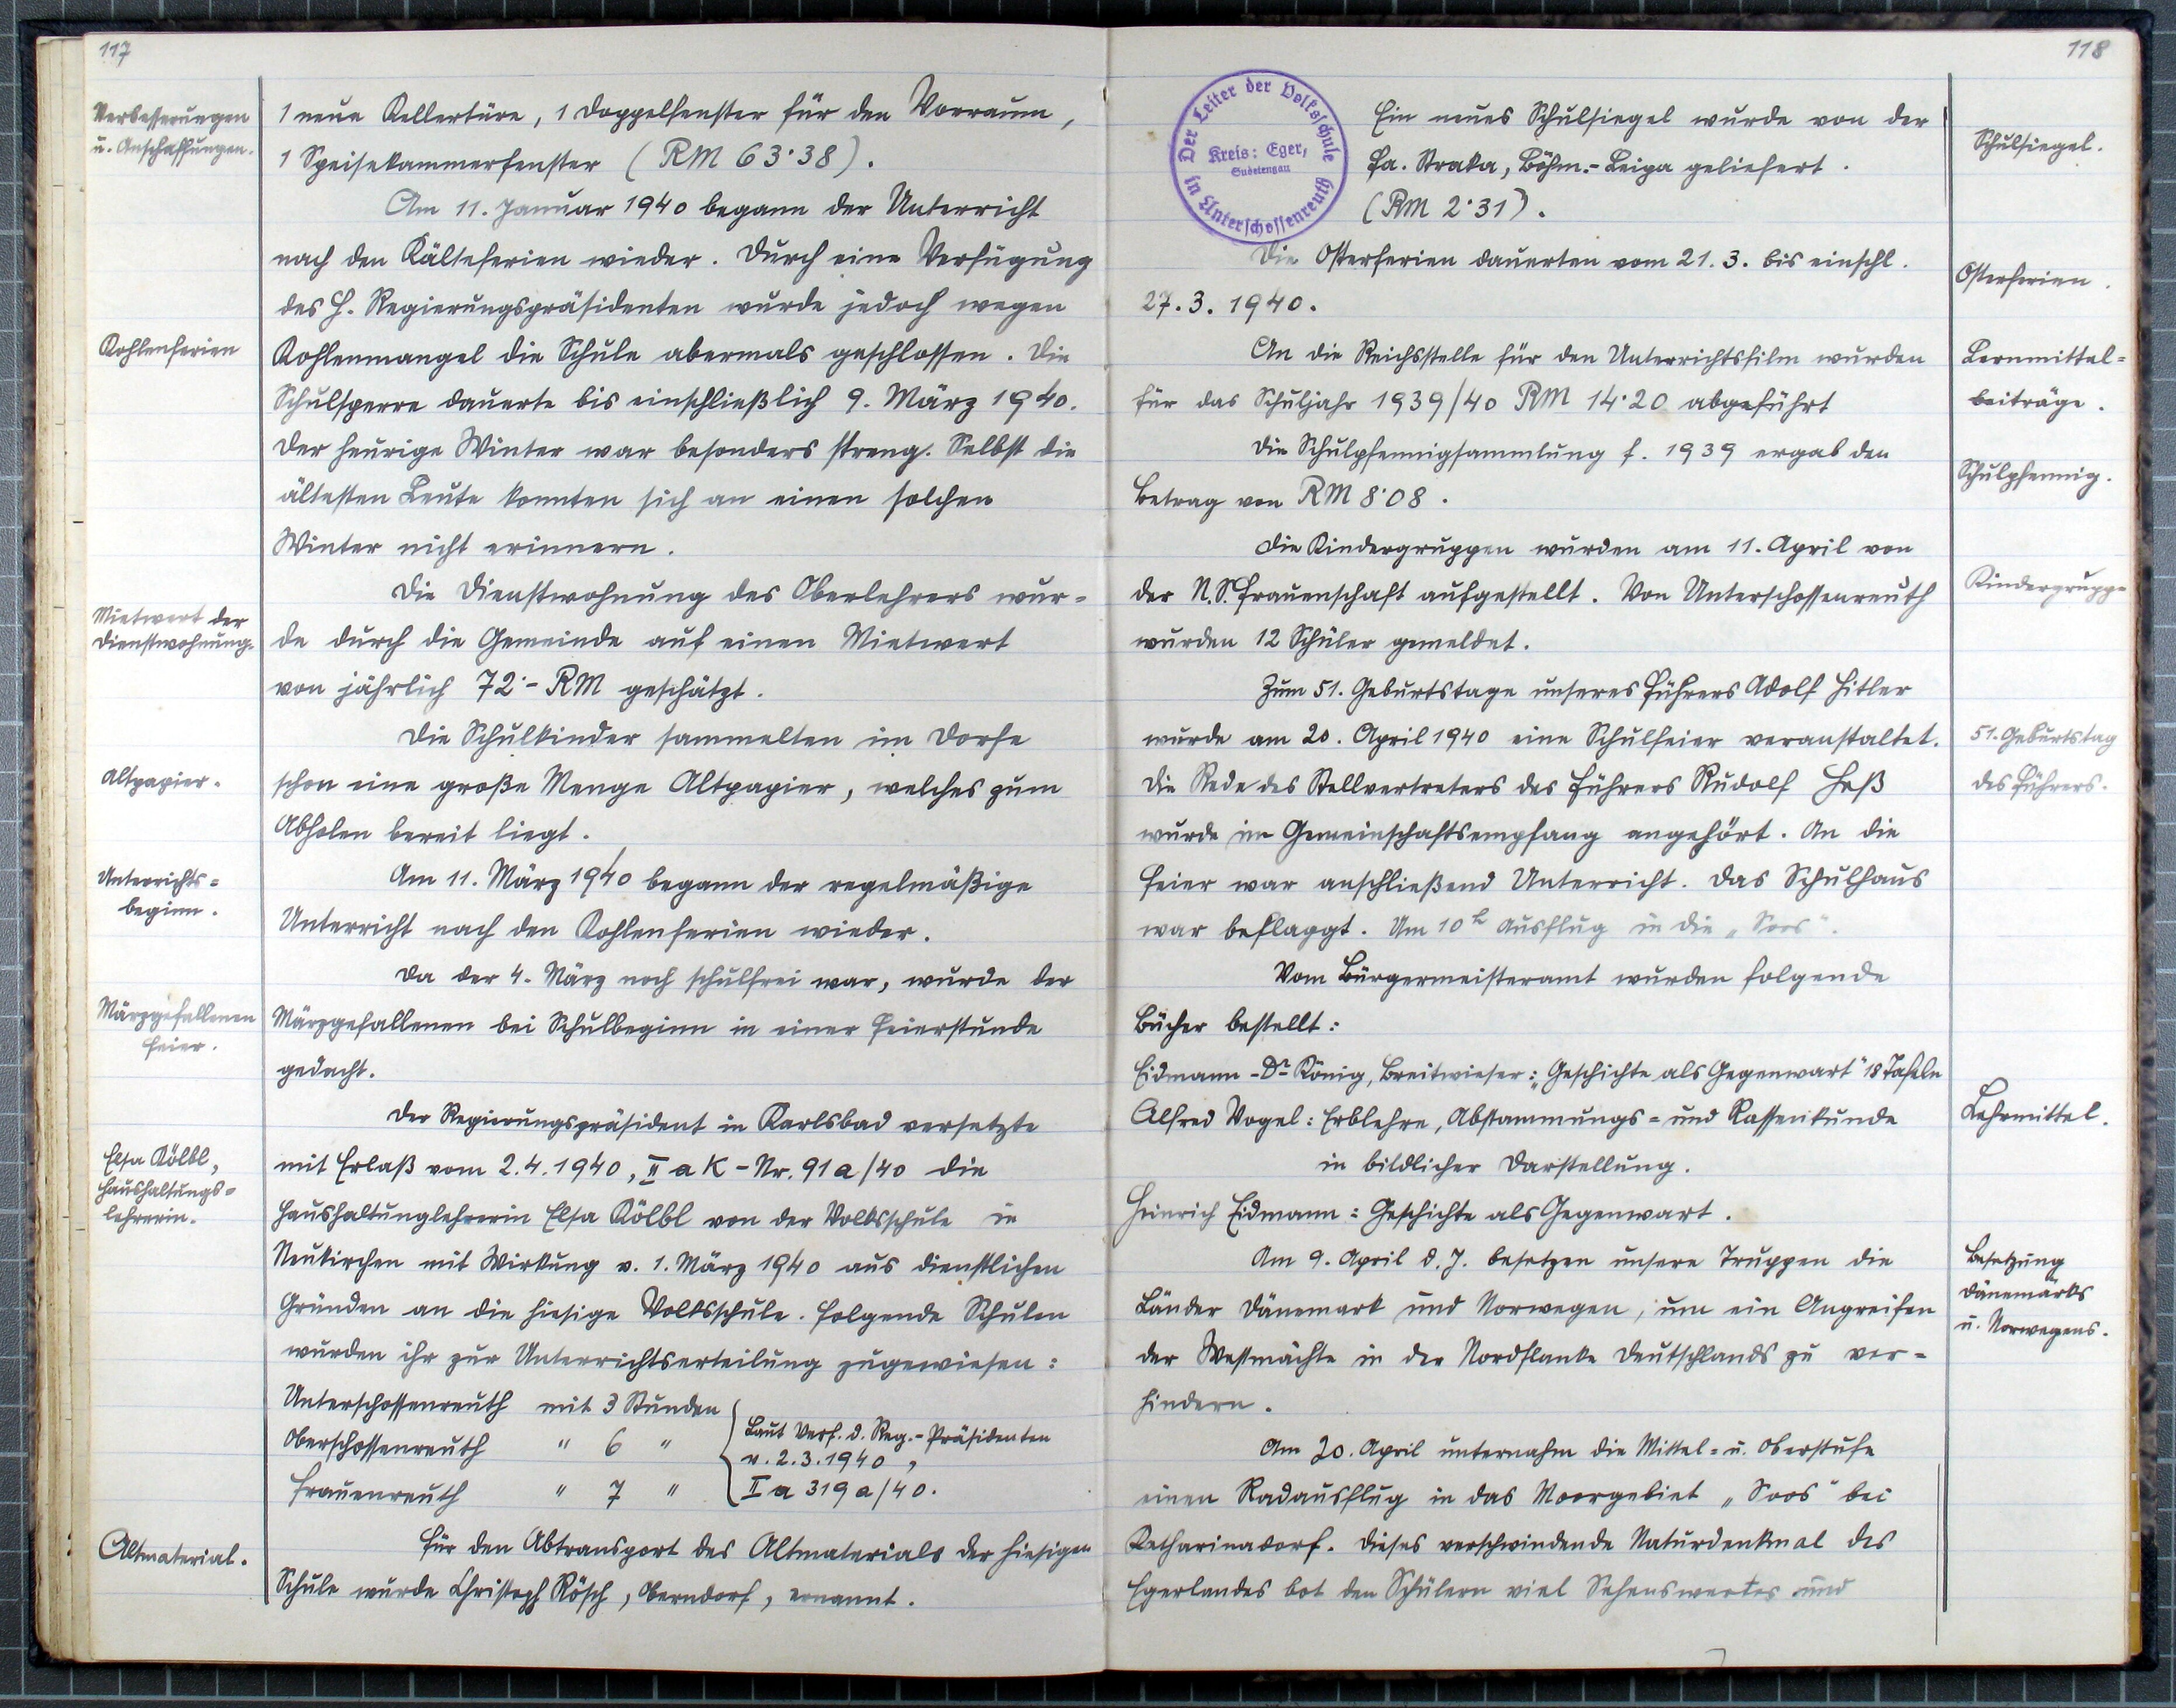 117
Verbesserungen
u. Anschaffungen.
1 neue Kellertüre, 1 Doppelfenster für den Vorraum,
1 Speisekammerfenster (RM 63·38).
Am 11. Januar 1940 begann der Unterricht
nach den Kälteferien wieder. Durch eine Verfügung
des H. Regierungspräsidenten wurde jedoch wegen
Kohlenferien
Kohlenmangel die Schule abermals geschlossen. Die
Schulsperre dauerte bis einschließlich 9. März 1940.
Der heurige Winter war besonders streng. Selbst die
ältesten Leute konnten sich an einen solchen
Winter nicht erinnern.
Die Dienstwohnung des Oberlehrers wur-
Mietwert der
Dienstwohnung.
de durch die Gemeinde auf einen Mietwert
von jährlich 72·- RM geschätzt.
Die Schulkinder sammelten im Dorfe
Altpapier.
schon eine große Menge Altpapier, welches zum
Abholen bereit liegt.
Unterrichts=
beginn.
Am 11. März 1940 begann der regelmäßige
Unterricht nach den Kohlenferien wieder.
Da der 4. März noch schulfrei war, wurde der
Märzgefallenen
feier.
Märzgefallenen bei Schulbeginn in einer Feierstunde
gedacht.
Der Regierungspräsident in Karlsbad versetzte
Elsa Kölbl,
Haushaltungs=
lehrerin.
mit Erlaß vom 2.4.1940, II a K - Nr. 91a/40 die
Haushaltunglehrerin Elsa Kölbl von der Volksschule in
Neukirchen mit Wirkung v. 1. März 1940 aus dienstlichen
Gründen an die hiesige Volksschule. Folgende Schulen
wurden ihr zur Unterrichtserteilung zugewiesen:
Unterschossenreuth mit 3 Stunden
Oberschossenreuth " 6 "
Frauenreuth " 7 "
Laut Verf. d. Reg.-Präsidenten
v. 2.3.1940,
II a 319a/40.
Altmaterial.
Für den Abtransport des Altmaterials der hiesigen
Schule wurde Christoph Rösch, Oberndorf, ernannt.
118
Der Leiter der Volksschule
in Unterschossenreuth
Kreis: Eger,
Sudetengau
Ein neues Schulsiegel wurde von der
Fa. Straka, Böhm.-Leipa geliefert.
(RM 2·31).
Schulsiegel.
Die Osterferien dauerten vom 21.3. bis einschl.
27.3.1940.
Osterferien.
An die Reichsstelle für den Unterrichtsfilm wurden
für das Schuljahr 1939/40 RM 14·20 abgeführt
Lernmittel=
beiträge.
Die Schulpfennigsammlung f. 1939 ergab den
Betrag von RM 8·08.
Schulpfennig.
Die Kindergruppen wurden am 11. April von
der N.S. Frauenschaft aufgestellt. Von Unterschossenreuth
wurden 12 Schüler gemeldet.
Kindergruppe
Zum 51. Geburtstage unseres Führers Adolf Hitler
wurde am 20. April 1940 eine Schulfeier veranstaltet.
Die Rede des Stellvertreters des Führers Rudolf Heß
wurde im Gemeinschaftsempfang angehört. An die
Feier war anschließend Unterricht. Das Schulhaus
war beflaggt. Um 10h Ausflug in die „Soos".
51. Geburtstag
des Führers.
Vom Bürgermeisteramt wurden folgende
Bücher bestellt:
Eidmann - Dr König, Breitwieser: „Geschichte als Gegenwart" 18 Tafeln
Alfred Vogel: Erblehre, Abstammungs= und Rassenkunde
in bildlicher Darstellung.
Lehrmittel.
Heinrich Eidmann: Geschichte als Gegenwart.
Am 9. April d. J. besetzen unsere Truppen die
Länder Dänemark und Norwegen, um ein Angreifen
der Westmächte in der Nordflanke Deutschlands zu ver=
hindern.
Besetzung
Dänemarks
u. Norwegens.
Am 20. April unternahm die Mittel= u. Oberstufe
einen Radausflug in das Moorgebiet „Soos" bei
Katharinadorf. Dieses verschwindende Naturdenkmal des
Egerlandes bot den Schülern viel Sehenswertes und